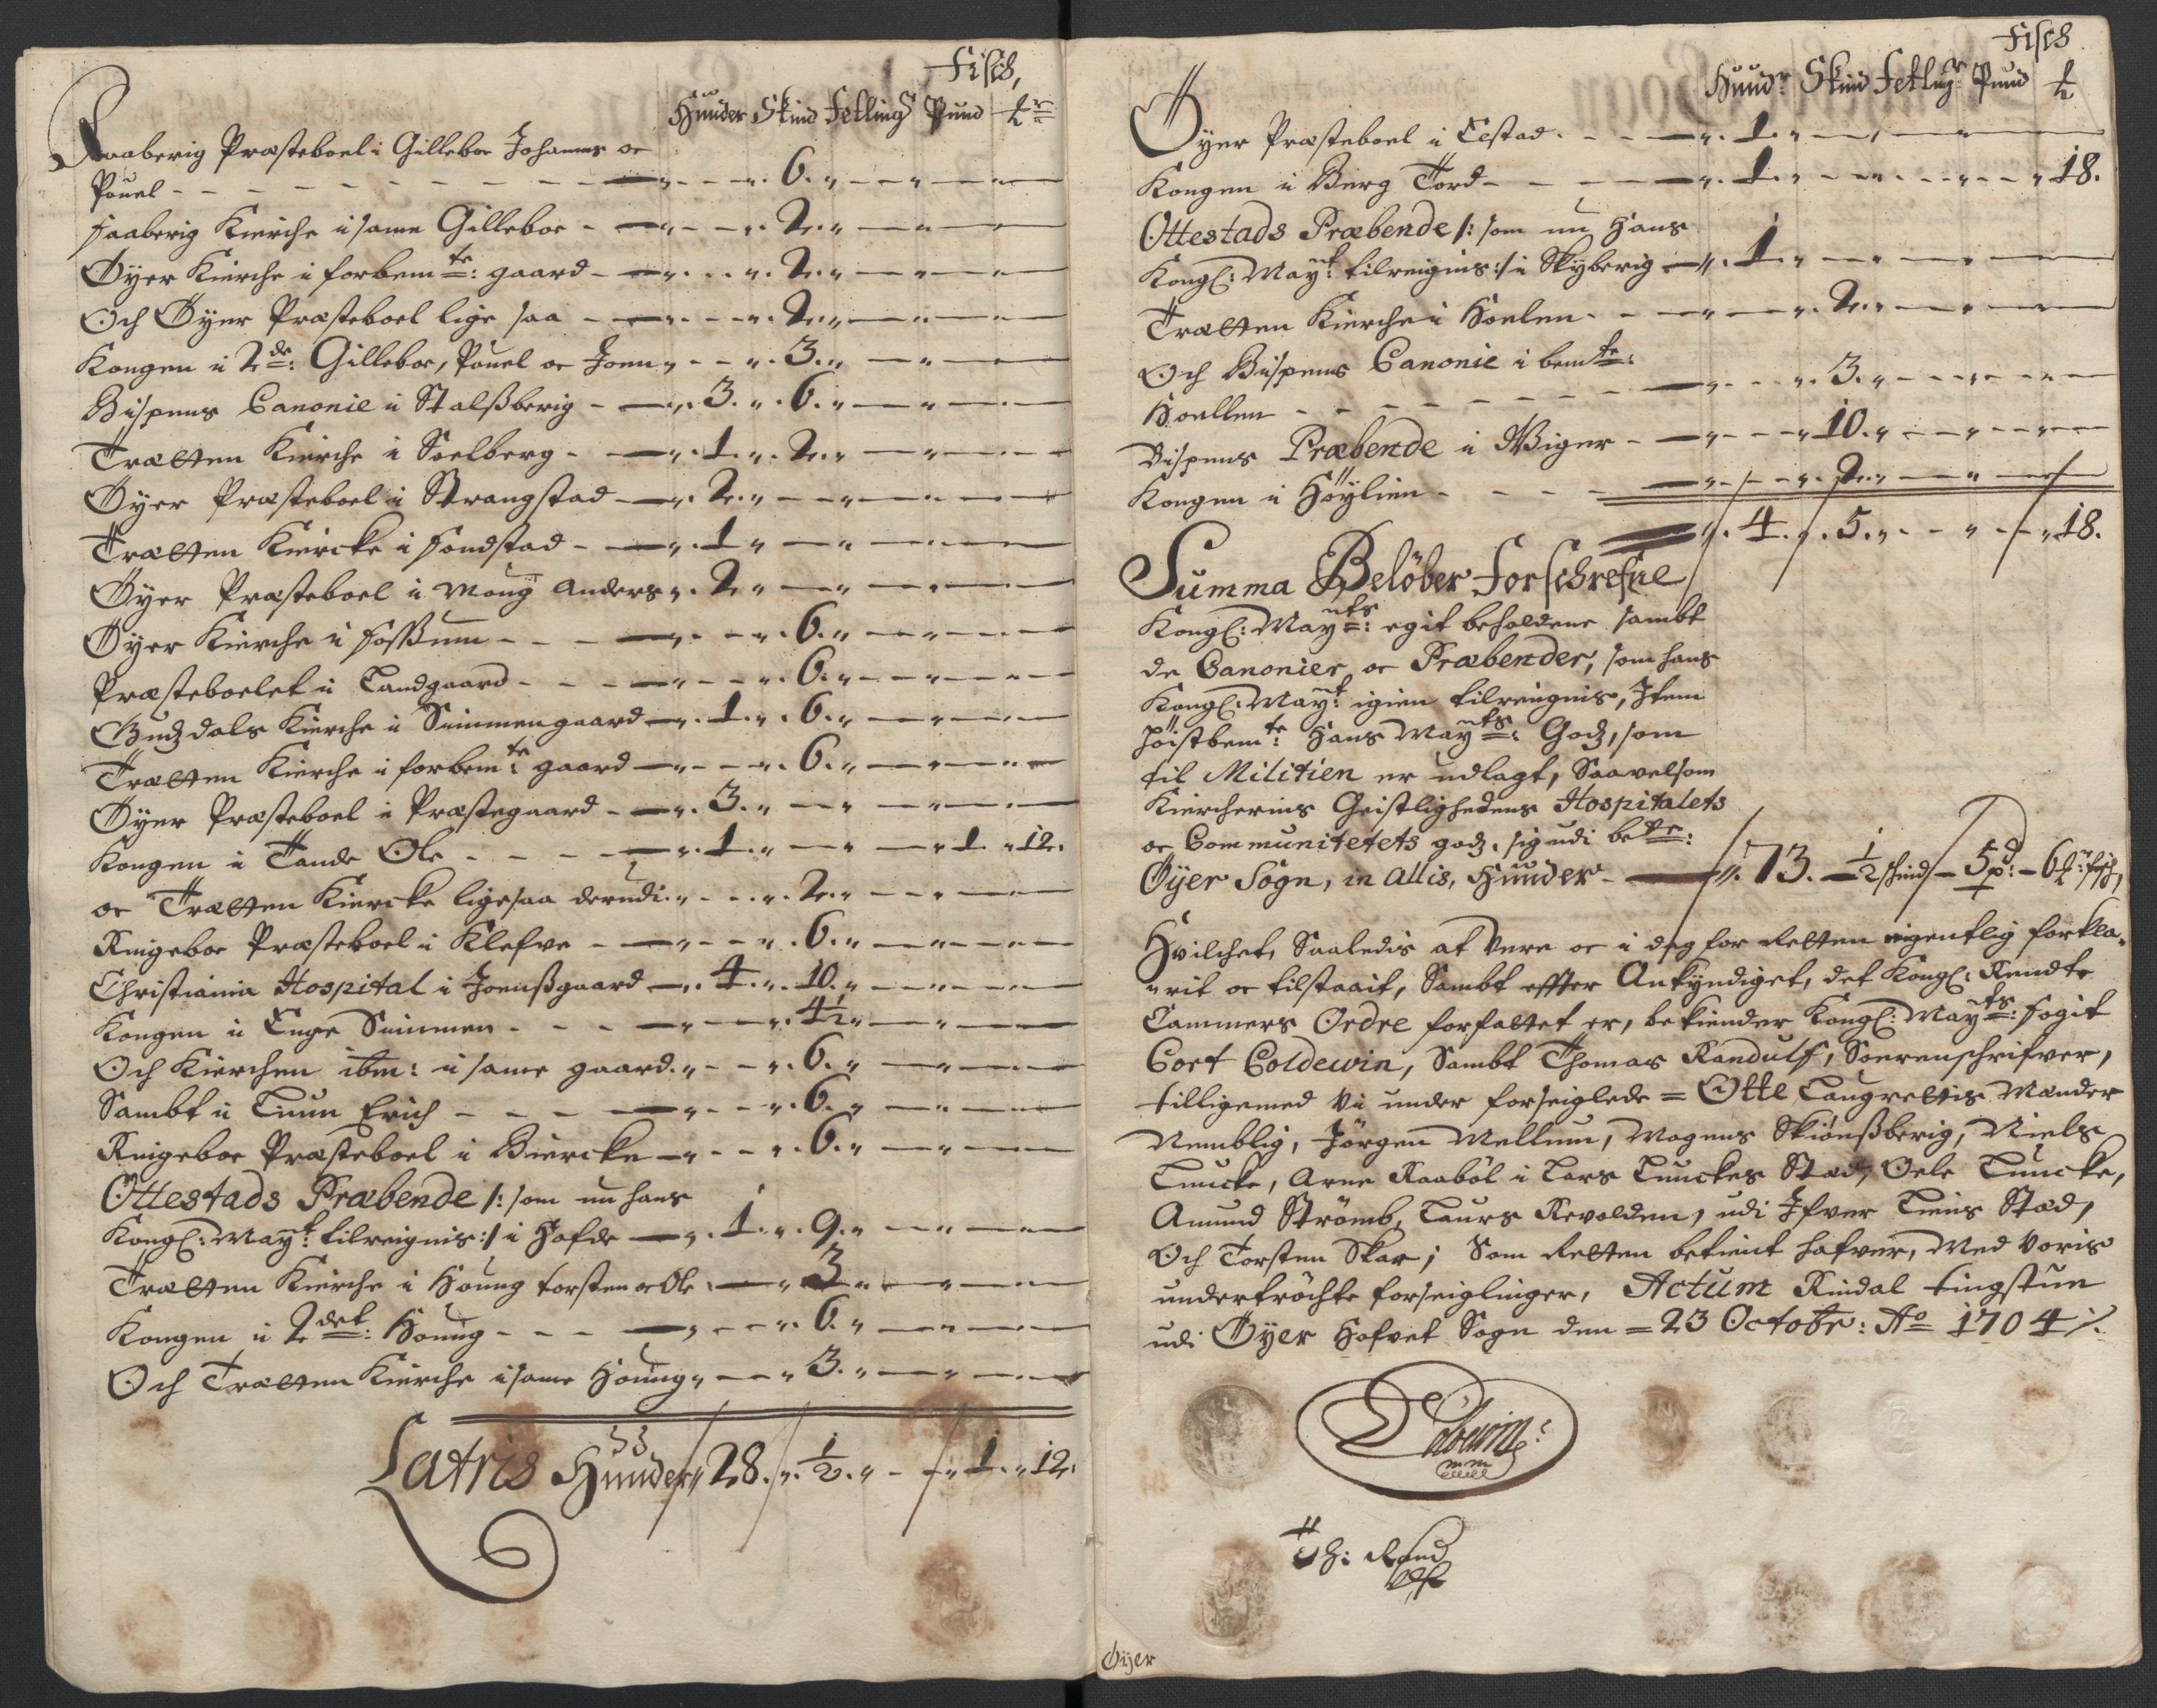 Fisch,
Huuder Skind Fetling Pund
Faaberig Præsteboel i Gilleboe Johannes oc
Pouel - - - 6.
Faaberig Kierche i same Gilleboe - 2.
Øyer Kierche i forbemte: gaard - 2.
Och Øyer Præsteboel lige saa - 2.
Kongen i 2de: Gilleboe, Pouel oc Joen 3.
Bispens Canonie i Stalßberig - 3. 6.
Trætten Kierche i Soelberg - 1. 2.
Øyer Præsteboel i Strangstad - 2.
Trætten Kiercke i Fondstad - 1
Øyer Præsteboel i Moug Anders 2
Øyer Kierche i Fossum - - - 6.
Præsteboelet i Landgaard - - - 6.
Gudzdals Kierche i Simmengaard 1. 6.
Trætten Kierche i forbemte: gaard 6.
Øyer Præsteboel i Præstegaard - 3.
Kongen i Tande Ole - - - 1. 1 12.
oc Trætten Kiercke ligesaa derudi 2.
Ringeboe Præsteboel i Klefve - 6.
Christiania Hospital i Joensßgaard 4. 10.
Kongen i Enge Simmen - - - 4½
Och Kierchen ibm: i same gaard. 6.
Sambt i Tuun Erich - - - 6.
Ringeboe Præsteboel i Biercke 6.
Ottestads Præbende /: som nu hans
Kongl: Mayt: tilreignis :/ i Hofde 1. 9.
Trætten Kierche i Houug torsten oc Ole 3
Kongen i 2det: Houug - - - 6.
Och Trætten Kierche i same Houug 3.
Latris Huuder 28. ½. 1. 12.
Fisch
Huudr Skind Fetlingr Pund
Øyer Præsteboel i Eestad - - - 1.
Kongen i Berg Tord - - 1. 18.
Ottestads Præbende /: som nu Hans
Kongl: Mayt: tilreignis :/ i Skyberig 1.
Trætten Kierche i Hoelen - - 2.
Och Bispens Canonie i bemte:
Hoellen - - - 3.
Bispens Præbende i Wiger - 10.
Kongen i Høylien - - - 2.
4. 5. 18.
Summa Beløber Forschrefne
Kongl: Mayts: egit beholdene sambt
de Canonier oc Præbender, som hans
Kongl: Mayt: igien tilreignis, Item
høistbemte: Hans Mayts: Godz, som
til Militien er udlagt, Saavelsom
Kierchernis Geistlighedens Hospitalets
oc Communitetets godz, sig udi bete:
Øyer Sogn, in Allis, Huuder - 73. - ½ skind - 5 pd: - 6 fisch,
Hvilchet, Saaledis at Vere oc i dag for Retten eigentlig forkla-
rit oc tilstaait, Sambt effter Ankyndiget, det Kongl: Rendte
Cammers Ordre forfattet er, bekiender Kongl: Mayts: fogit
Cort Coldewin, Sambt Thomas Randulf, Sorenschrifver,
tilligemed Vi under forseiglede = Otte Laugrettis Mænder
Nemblig, Jørgen Mellum, Mogens Skiønßberig, Niels
Luncke, Arne Raabøl i Lars Lunckes Stæd, Oele Luncke,
Amund Strømb, Laurs Revolden, udi Ifver Liens Stæd,
Och Torsten Skar; Som Retten betient hafver, Med Voris
undertrøchte forseiglinger, Actum Rindal tingstue
udi Øyer Hofvet Sogn den = 23 Octobr: Ao 1704 ./.
Coldewin:
Th: Rand
ulf
Øijer